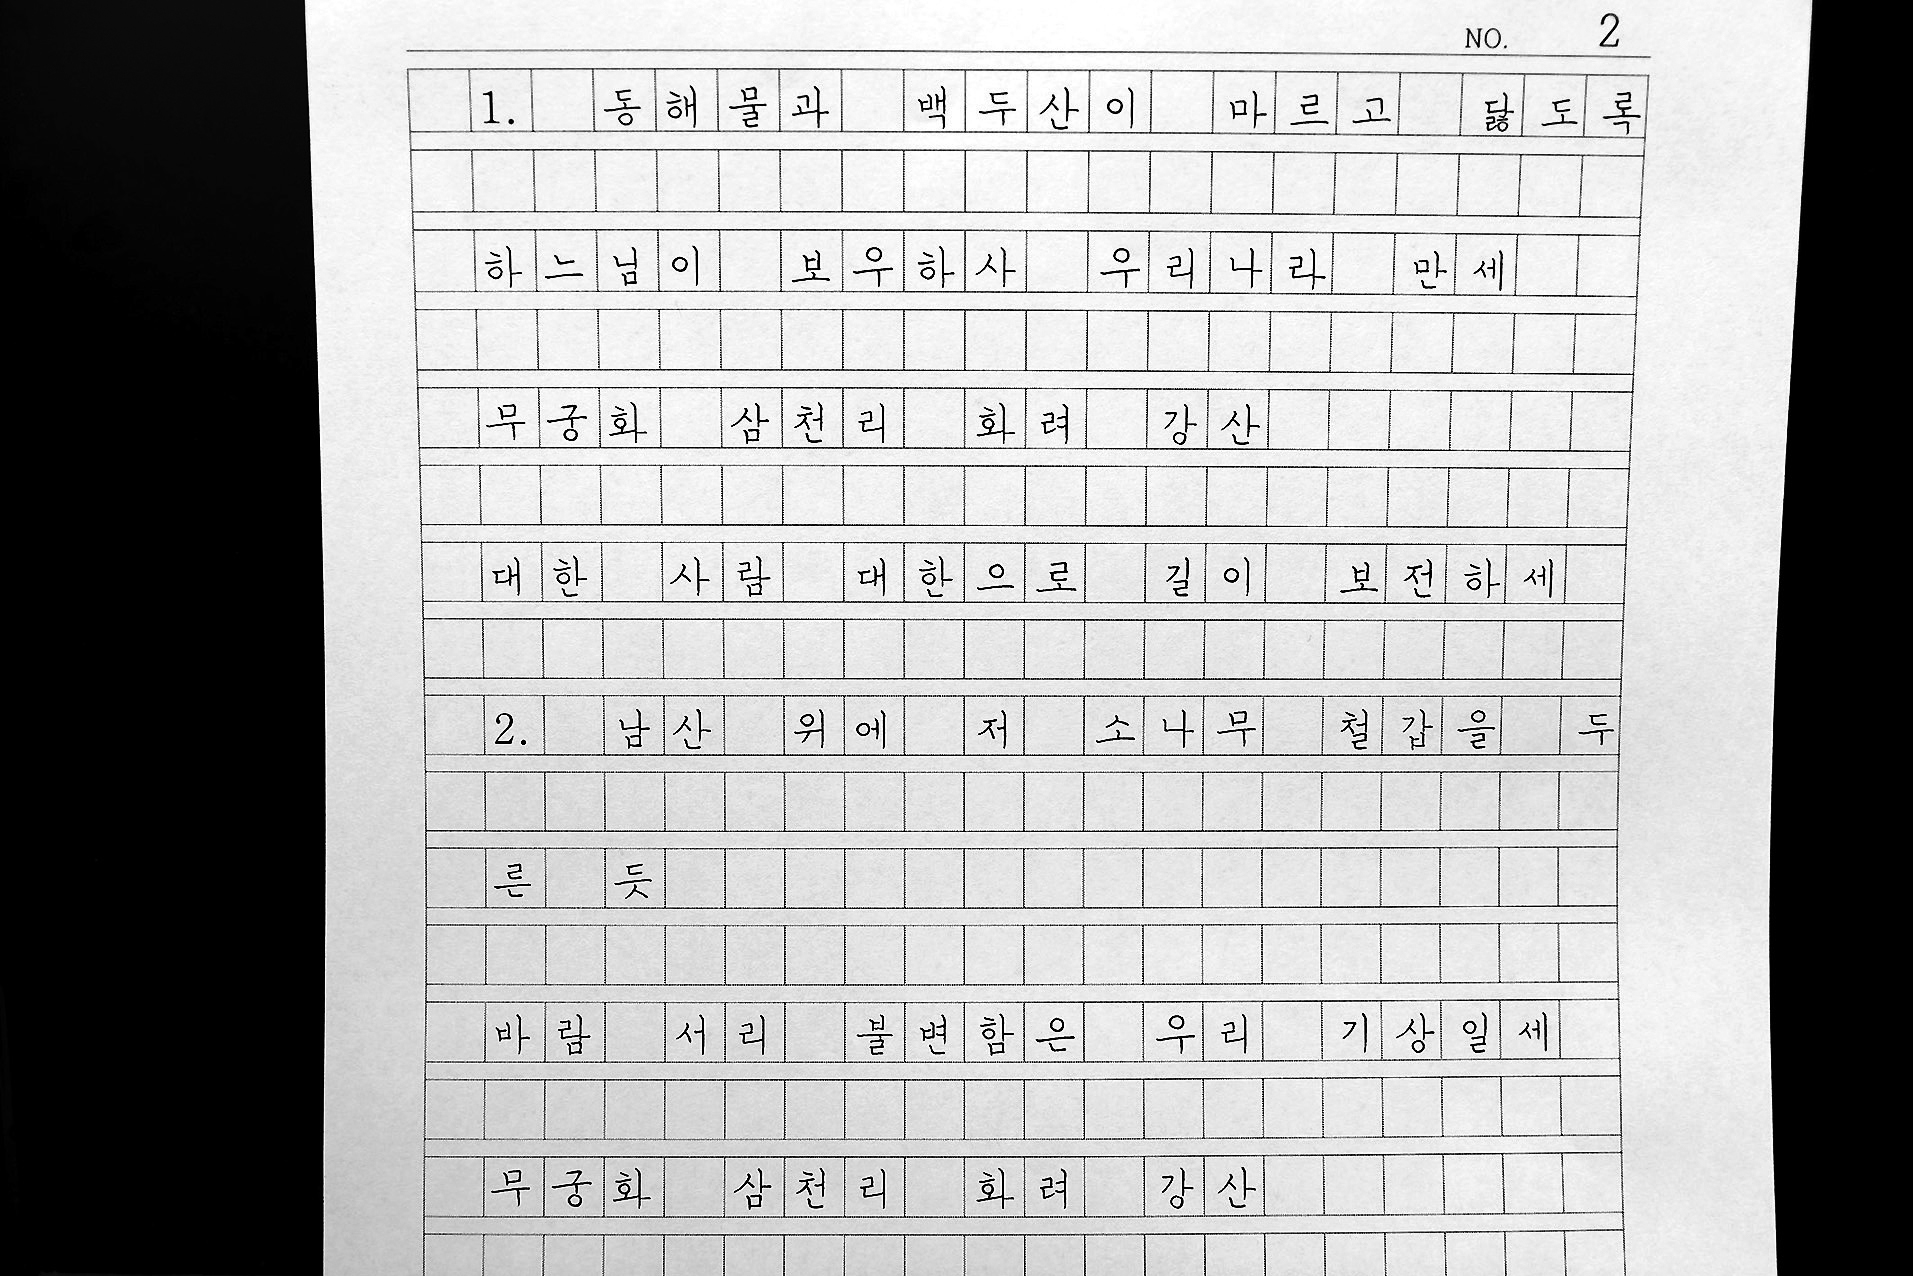 NO. 2
1. 동해물과 백두산이 마르고 닳도록
하느님이 보우하사 우리나라 만세
무궁화 삼천리 화려 강산
대한 사람 대한으로 길이 보전하세
2. 남산 위에 저 소나무 철갑을 두
른 듯
바람 서리 불변함은 우리 기상일세
무궁화 삼천리 화려 강산